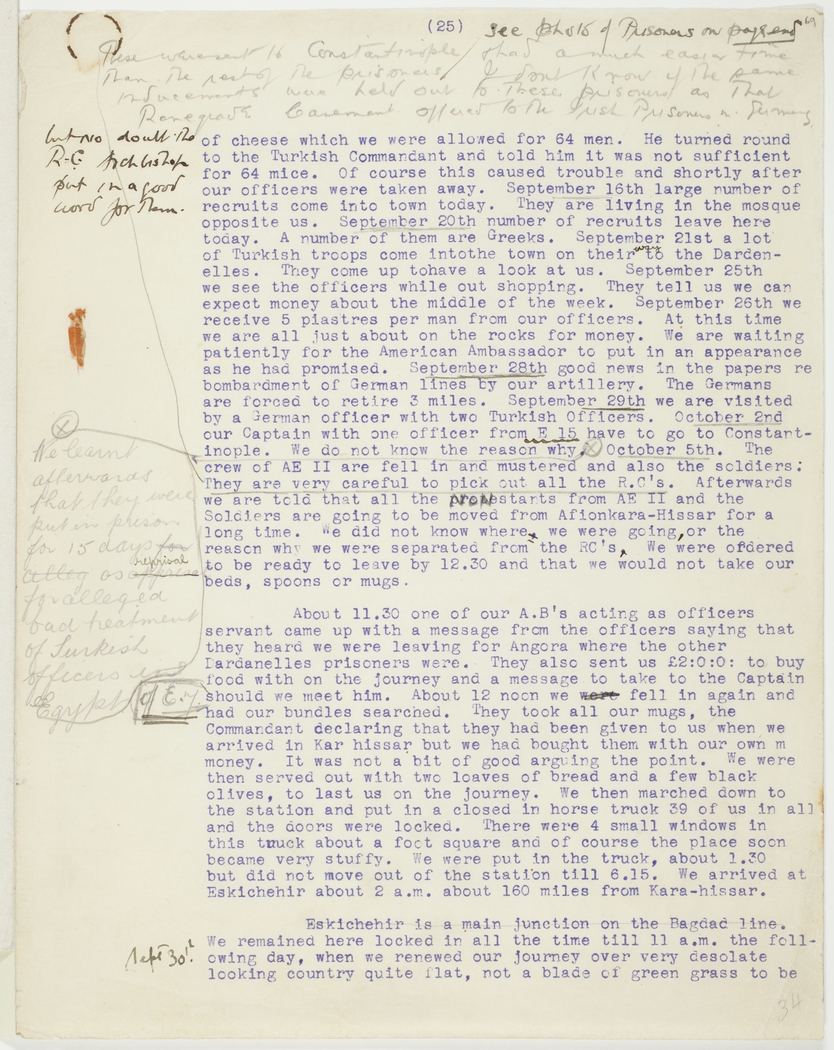 (25)
see photo of Prisoners on page end
69
These were sent to Constantinople & had a much easier time
than the rest of the prisoners. I dont know if the same
inducements were held out to these prisoners as that
Renegrade Casement offered to the Irish Prisoners in Germany
but no doubt the
R-C Archbishop
put in a good
word for them.
of cheese which we were allowed for 64 men. He turned round
to the Turkish Commandant and told him it was not sufficient
for 64 mice. Of course this caused trouble and shortly after
our officers were taken away. September 16th large number of
recruits come into town today. They are living in the mosque
opposite us. September 20th number of recruits leave here
today. A number of them are Greeks. September 21st a lot
of Turkish troops come intothe town on their way to the Darden-
elles. They come up tohave a look at us. September 25th
we see the officers while out shopping. They tell us we can
expect money about the middle of the week. September 26th we
receive 5 piastres per man from our officers. At this time
we are all just about on the rocks for money. We are waiting
patiently for the American Ambassador to put in an appearance
as he had promised. September 28th good news in the papers re
bombardment of German lines by our artillery. The Germans
are forced to retire 3 miles. September 29th we are visited
by a German officer with two Turkish Officers. October 2nd
our Captain with one officer from E 15 have to go to Constant-
inople. We do not know the reason why. (X) October 5th. The
crew of AE II are fell in and mustered and also the soldiers;
They are very careful to pick out all the R.C's. Afterwards
we are told that all the protestarts from AE II and the
Soldiers are going to be moved from Afionkara-Hissar for a
long time. We did not know where, we were going, or the
reason why we were separated from the RC's, We were ordered
to be ready to leave by 12.30 and that we would not take our
beds, spoons or mugs.
(X)
We learnt
afterwards
that they were
put in prison
for 15 days for
alleg as reprisal
for alleged
bad treatment
of Turkish
officers in
Egypt
of E.7
About 11.30 one of our A.B's acting as officers
servant came up with a message from the officers saying that
they heard we were leaving for Angora where the other
Dardanelles prisoners were. They also sent us £2:0:0: to buy
food with on the journey and a message to take to the Captain
should we meet him. About 12 noon we were fell in again and
had our bundles searched. They took all our mugs, the
Commandant declaring that they had been given to us when we
arrived in Kar hissar but we had bought them with our own m
money. It was not a bit of good arguing the point. We were
then served out with two loaves of bread and a few black
olives, to last us on the journey. We then marched down to
the station and put in a closed in horse truck 39 of us in all
and the doors were locked. There were 4 small windows in
this truck about a foot square and of course the place soon
became very stuffy. We were put in the truck, about 1.30
but did not move out of the station till 6.15. We arrived at
Eskichehir about 2 a.m. about 160 miles from Kara-hissar.
Eskichehir is a main junction on the Bagdad line.
Sept 30th.
We remained here locked in all the time till 11 a.m. the foll-
owing day, when we renewed our journey over very desolate
looking country quite flat, not a blade of green grass to be
34